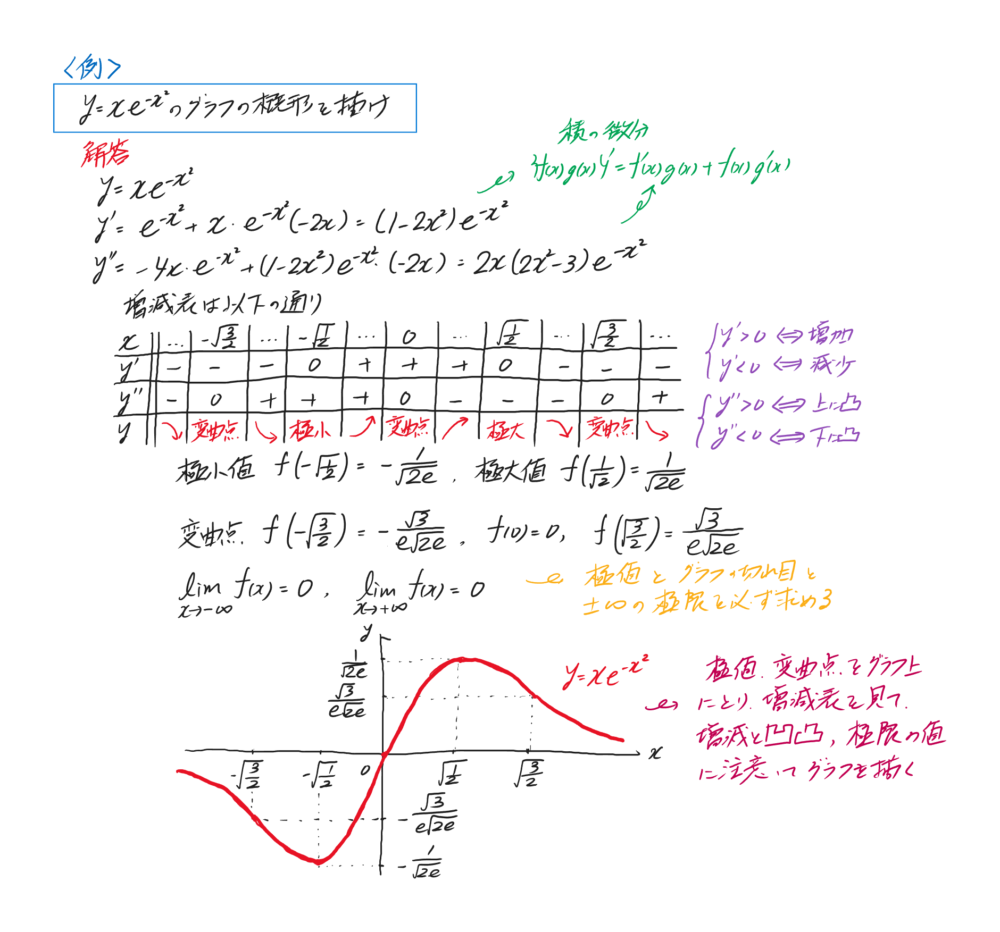 <例>
y=xe^{-x²}のグラフの概形を描け
解答
積の微分
{f(x)g(x)}'=f'(x)g(x)+f(x)g'(x)
y=xe^{-x²}
y'=e^{-x²}+x・e^{-x²}(-2x)=(1-2x²)e^{-x²}
y''=-4x・e^{-x²}+(1-2x²)e^{-x²}・(-2x)=2x(2x²-3)e^{-x²}
増減表は以下の通り
x … -√(3/2) … -√(1/2) … 0 … √(1/2) … √(3/2) …
y' - - - 0 + + + 0 - - -
y'' - 0 + + + 0 - - - 0 +
y ↘ 変曲点 ↘ 極小 ↗ 変曲点 ↗ 極大 ↘ 変曲点 ↘
y'>0 ⇔ 増加
y'<0 ⇔ 減少
y''>0 ⇔ 上に凸
y''<0 ⇔ 下に凸
極小値 f(-√(1/2))=-1/√2e , 極大値 f(1/√2)=1/√2e
変曲点、f(-√(3/2))=-√3/e√2e , f(0)=0, f(√(3/2))=√3/e√2e
lim_{x→-∞} f(x)=0 , lim_{x→+∞} f(x)=0
極値とグラフの切れ目と
±∞の極限を必ず求める
y
1/√2e
√3/e√2e
y=xe^{-x²}
-√(3/2) -√(1/2) 0 √(1/2) √(3/2) x
-√3/e√2e
-1/√2e
極値、変曲点をグラフ上
にとり、増減表を見て、
増減と凹凸, 極限の値
に注意してグラフを描く